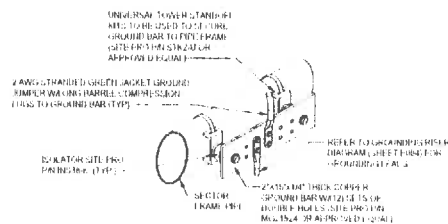 UNIVERSAL TOWER STANDOFF
KITS TO BE USED TO SECURE
GROUND BAR TO PIPE FRAME
(SITE PRO P/N
APPROVED EQUAL)
2 AWG STRANDED GREEN JACKET GROUND
JUMPER W/LONG BARREL COMPRESSION
LUGS TO GROUND BAR (TYP)
ISOLATOR SITE PRO
P/N (TYP)
SECTOR
FRAME PIPE
REFER TO GROUNDING RISER
DIAGRAM (SHEET FOR
GROUNDING LEADS
THICK COPPER
GROUND BAR SETS OF
DOUBLE HOLES (SITE PRO P/N
OR APPROVED EQUAL)